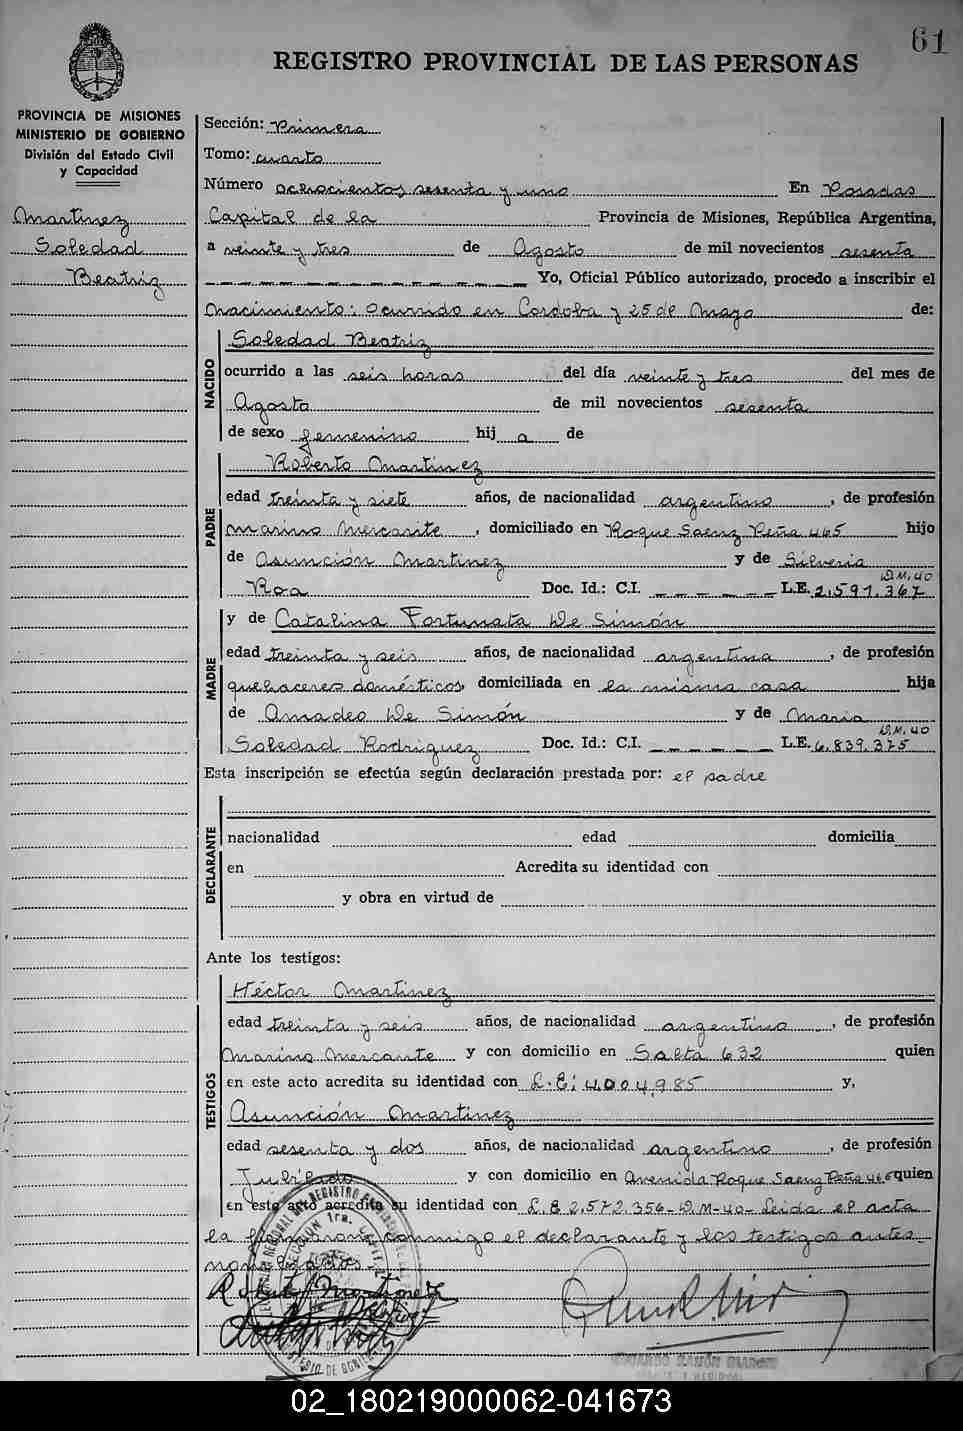 61
REGISTRO PROVINCIAL DE LAS PERSONAS
PROVINCIA DE MISIONES
MINISTERIO DE GOBIERNO
División del Estado Civil
y Capacidad
Martinez
Soledad
Beatriz
Sección: Primera
Tomo: cuarto
Número ochocientos sesenta y uno En Posadas
Capital de la Provincia de Misiones, República Argentina,
a veinte y tres de Agosto de mil novecientos sesenta
Yo, Oficial Público autorizado, procedo a inscribir el
Nacimiento: ocurrido en Cordoba y 25 de Mayo de:
NACIDO
Soledad Beatriz
ocurrido a las seis horas del día veinte y tres del mes de
Agosto de mil novecientos sesenta
de sexo femenino hij a de
PADRE
Roberto Martinez
edad treinta y siete años, de nacionalidad argentino, de profesión
marino Mercante, domiciliado en Roque Saenz Peña 465 hijo
de Asunción Martinez y de Silveria
D.M. 40
Roa Doc. Id.: C.I. L.E. 2.591.367
MADRE
y de Catalina Fortunata De Simón
edad treinta y seis años, de nacionalidad argentina, de profesión
quehaceres domésticos, domiciliada en la misma casa hija
de Amadeo De Simón y de Maria
D.M. 40
Soledad Rodriguez Doc. Id.: C.I. L.E. 6.839.375
Esta inscripción se efectúa según declaración prestada por: el padre
DECLARANTE
nacionalidad edad domicilia
en Acredita su identidad con
y obra en virtud de
Ante los testigos:
TESTIGOS
Héctor Martinez
edad treinta y seis años, de nacionalidad argentino, de profesión
Marino Mercante y con domicilio en Salta 632 quien
en este acto acredita su identidad con L.E: 4.004.985 y,
Asunción Martinez
edad sesenta y dos años, de nacionalidad argentino, de profesión
Jubilado y con domicilio en Avenida Roque Saenz Peña 465 quien
en este acto acredita su identidad con L.E 2.572.356-D.M-40- Leida el acta
la firmaron conmigo el declarante y los testigos antes
nombrados
02_180219000062-041673